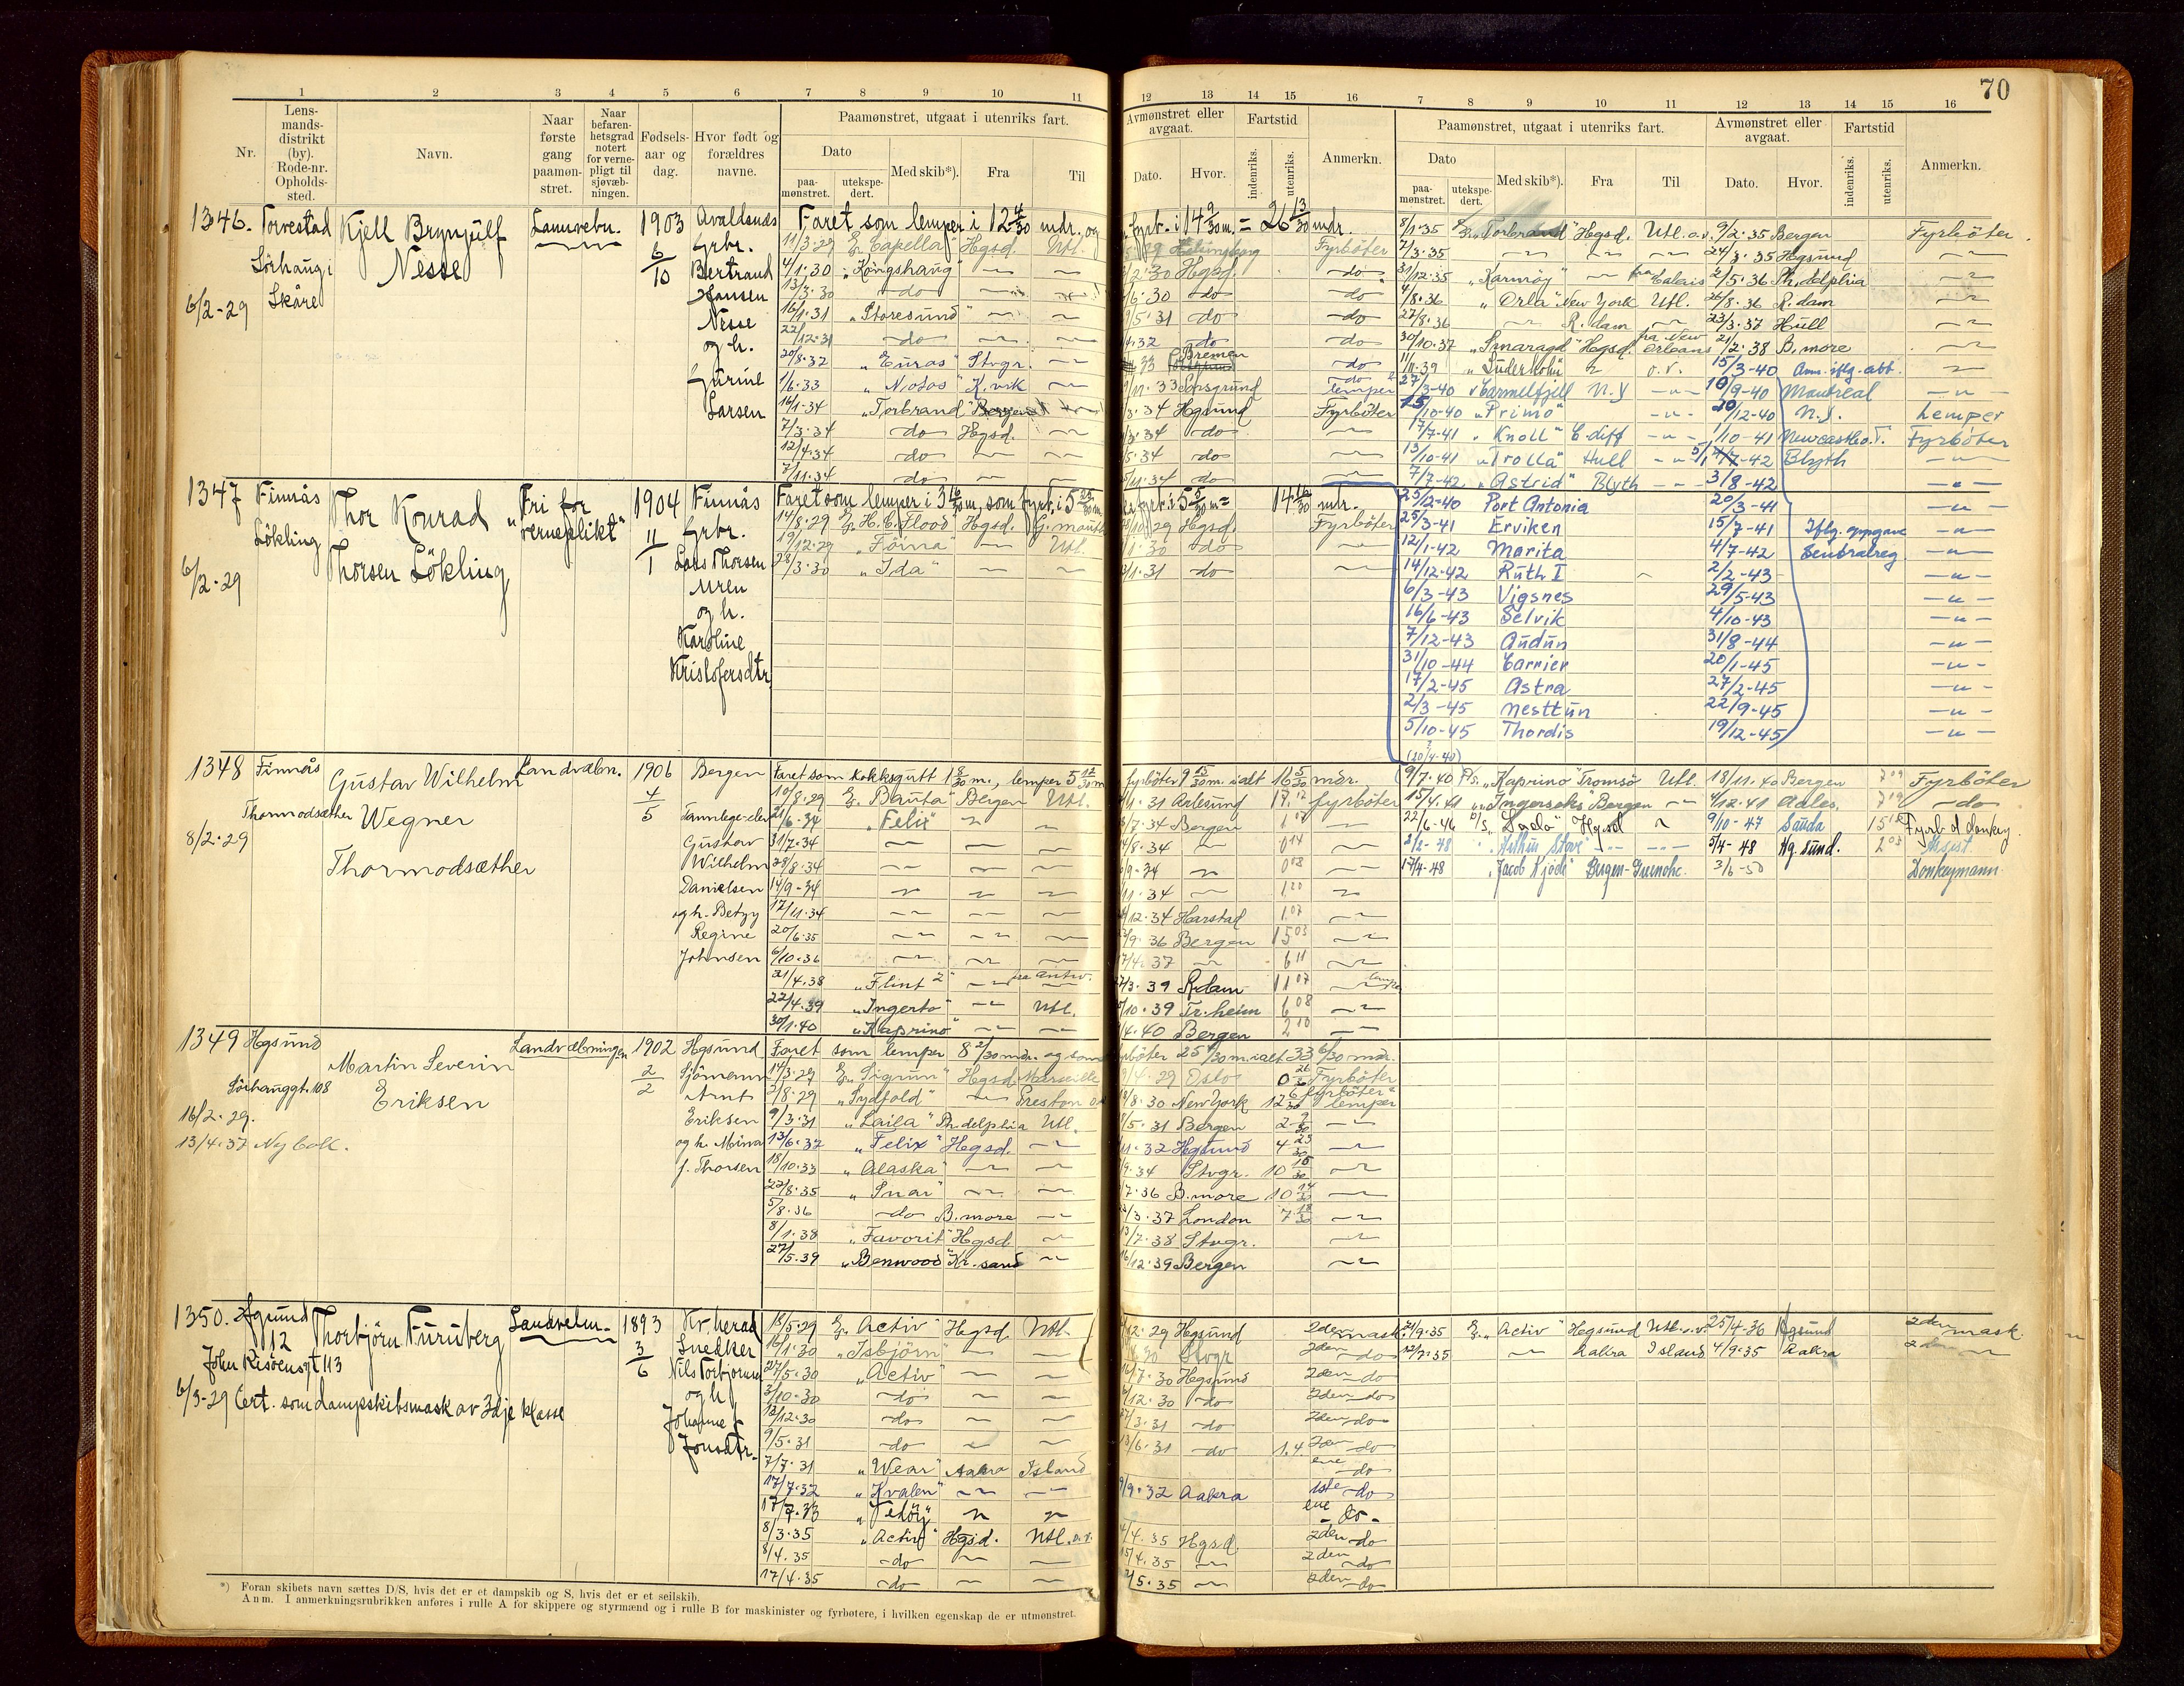 70
1 2 3 4 5 6 7 8 9 10 11 12 13 14 15 16 7 8 9 10 11 12 13 14 15 16
Nr.
Lens-
mands-
distrikt
(by).
Rode-nr.
Opholds-
sted.
Navn.
Naar
første
gang
paamøn-
stret.
Naar
befaren-
hetsgrad
notert
for verne-
pligt til
sjøvæb-
ningen.
Fødsels-
aar og
dag.
Hvor født og
forældres
navne.
Paamønstret, utgaat i utenriks fart.
Dato
paa-
mønstret.
utekspe-
dert.
Med skib*).
Fra
Til
Avmønstret eller
avgaat.
Dato.
Hvor.
Fartstid
indenriks.
utenriks.
Anmerkn.
Paamønstret, utgaat i utenriks fart.
Dato
paa-
mønstret.
utekspe-
dert.
Med skib*).
Fra
Til
Avmønstret eller
avgaat.
Dato.
Hvor.
Fartstid
indenriks.
utenriks.
Anmerkn.
1346. Torvestad
Sörhaug i
Skåre
6/2-29
Kjell Brynjülf
Nesse
1903
6/10
Avaldsnes
Grbr.
Bertrand
Hansen
Nesse
og h.
Gurine
Larsen
Faret som lemper i 12 4/30 mdr. og fyrb. i 14 9/30 m. = 26 13/30 mdr.
11/3-29 "Capella" Hegsd. Utl. Fyrböter
4/1-30 "Kongshaug" Hegsd. do
13/3-30 do 6-30 do do
16/1-31 "Storesund" 5-31 do do
22/12-31 do 4-32 do do
20/8-32 "Euros" Stvgr. Bremen do
1/6-33 "Notos" K.vik Porsgrund lemper
16/1-34 "Torbrand" 3-34 Hgsund Fyrböter
7/3-34 do Hegsd. do
12/4-34 do 5-34 do
7/11-34 do do
8/1-35 "Torbrand" Hegsd. Utl. o.v. 9/2-35 Bergen Fyrböter.
7/3-35 24/3-35 Hegsund
31/12-35 "Karmöy" fra Calais 2/5-36 Ph.delphia
4/8-36 "Orla" New York Utl. 26/8-36 R.dam
27/8-36 R.dam 23/3-37 Hull
30/10-37 "Smaragd" Hegsd. fra New Orleans 21/2-38 B.more
11/11-39 "Suderholm" o.v. 15/3-40 Anm. iflg. att.
27/3-40 "Carmelfjell N.Y 10/9-40 Montreal
15/10-40 "Primo" 20/12-40 N.Y. Lemper
17/7-41 "Knoll" C.diff 1/10-41 Newcastle o.T. Fyrböter
13/10-41 "Trolla" Hull 7-42 Blyth
7/7-42 "Astrid" Blyth 3/8-42
23/12-40 Port Antonia 20/3-41
25/3-41 Erviken 15/7-41 Iflg. oppgave
12/1-42 Marita 4/7-42 Sentralreg.
14/12-42 Ruth I 2/2-43
6/3-43 Vigsnes 29/5-43
16/6-43 Selvik 4/10-43
7/12-43 Audun 31/8-44
31/10-44 Carrier 20/1-45
17/2-45 Astra 27/2-45
2/3-45 Nesttun 22/9-45
5/10-45 Thordis 19/12-45
1347 Finnås
Lökling
6/2-29
Thor Konrad
Thorsen Lökling
"Fri for
verneplikt"
1904
11/1
Finnås
Grbr.
Lars Thorsen
Uren
og h.
Karoline
Kristofersdtr.
Faret som lemper i 3 16/30 m, som fyrb. i 5 m. 14 16/30 mdr.
14/8-29 "H.C. Flood Hegsd. 10/29 Hegsd. Fyrböter
19/12-29 "Föina" Utl. 1-30 do
28/3-30 "Ida" 1-31 do
1348 Finnås
Thormodsæther
8/2-29
Gustav Wilhelm
Wegner
Thormodsæther
Landvæbn.
1906
4/5
Bergen
Tannlege-elev
Gustav
Wilhelm
Danielsen
og h. Betzy
Regine
Johnsen
Faret som kokksgutt 1 8/30 m., lemper 5 12/30 m fyrböter 9 15/30 m. ialt 16 5/30 mdr.
10/8-29 "Bauta" Bergen Utl. 1-31 Aalesund fyrböter
21/6-34 "Felix" 7-34 Bergen
31/7-34 8-34
28/8-34 9-34
14/9-34 11-34
17/11-34 12-34 Harstad
20/6-35 9-36 Bergen 15 03
6/10-36 4-37 6 11
21/4-38 "Flint 2" fra Antw. 3-39 R.dam 11 07
22/4-39 "Ingerto" Utl. 10-39 Tr.heim 6 08
30/1-40 "Kaprino" 4-40 Bergen 2 10
(20/4-40)
9/7-40 D/s. "Kaprino" Tromsö Utl. 18/11-40 Bergen 7 09 Fyrböter
15/4-41 "Ingerseks" Bergen 4/12-41 Adles. 7 19 do
22/6-46 D/s "Lado" Hgsd 9/10-47 Sauda Fyrb. d donkey.
2/2-48 "Arthur Stove" 5/4-48 Hg.sund. 2 03 Assist.
17/4-48 "Jacob Kjöde" Bergen 3/6-50 Donkeymann.
1349 Hgsund
Sörhauggt. 108
16/2-29.
13/4-37 Ny bok.
Martin Severin
Eriksen
Landvæbningen
1902
2/2
Hgsund
Sjömann
Arnt
Eriksen
og h. Mina
f. Thorsen
Faret som lemper 8 2/30 mdr. og som fyrböter 25 4/30 m. ialt 33 6/30 mdr.
14/3-29 "Sigrun" Hegsd. Marseille 4-29 Oslo 0 26/30 Fyrböter
2/8-29 "Sydfold" Preston 8-30 New York 12 6/30 fyrböter lemper
9/3-31 "Laila" Ph.delphia Utl. 5-31 Bergen
13/6-32 "Felix" Hegsd. 11-32 Hegsund 4 23/30
18/10-33 "Alaska" 9-34 Stvgr. 10 15/30
22/8-35 "Snar" 7-36 B.more 10 14/30
5/8-36 do B.more 3-37 London 7 18/30
8/1-38 "Favorit" Hegsd. 7-38 Stvgr.
27/5-39 "Benwood" Kr.sand 16/12-39 Bergen
1350. Hgsund
12
John Risöensgt. 113
6/3-29 Cert. som dampskibsmask av 3dje klasse
Thorbjörn Furuberg
1893
3/6
Kv.herad
Snedker
Nils Torbjörnsen
og h.
Johanne
Jonsdtr.
18/5-29 "Activ" Hegsd. Utl. 12-29 Hegsund 2den mask
16/1-30 "Isbjörn" Stvgr 2den do
27/5-30 "Activ" 7-30 Hegsund 2den do
3/10-30 do 12-30 do 2den do
12/12-30 do 3-31 do 2den do
9/5-31 do 13/6-31 do 1.4. 2den do
7/7-31 "Wear" Aakra Island ene do
17/7-32 "Hvalen" 9-32 Aakra 1ste do
17/7-33 ene do
8/3-35 "Activ" Hgsd. Utl. o.v. 4-35 Hgsd. 2den do
8/4-35 do 15/4-35 2den do
17/4-35 do 5-35 2den do
21/9-35 "Activ" Hegsund Utl. o.v. 25/4-36 Hgsund 2den mask
12/7-35 Aakra Island 4/9-35 Aakra 2den
*) Foran skibets navn sættes D/S, hvis det er et dampskib og S, hvis det er et seilskib.
Anm. I anmerkningsrubrikken anføres i rulle A for skippere og styrmænd og i rulle B for maskinister og fyrbøtere, i hvilken egenskap de er utmønstret.